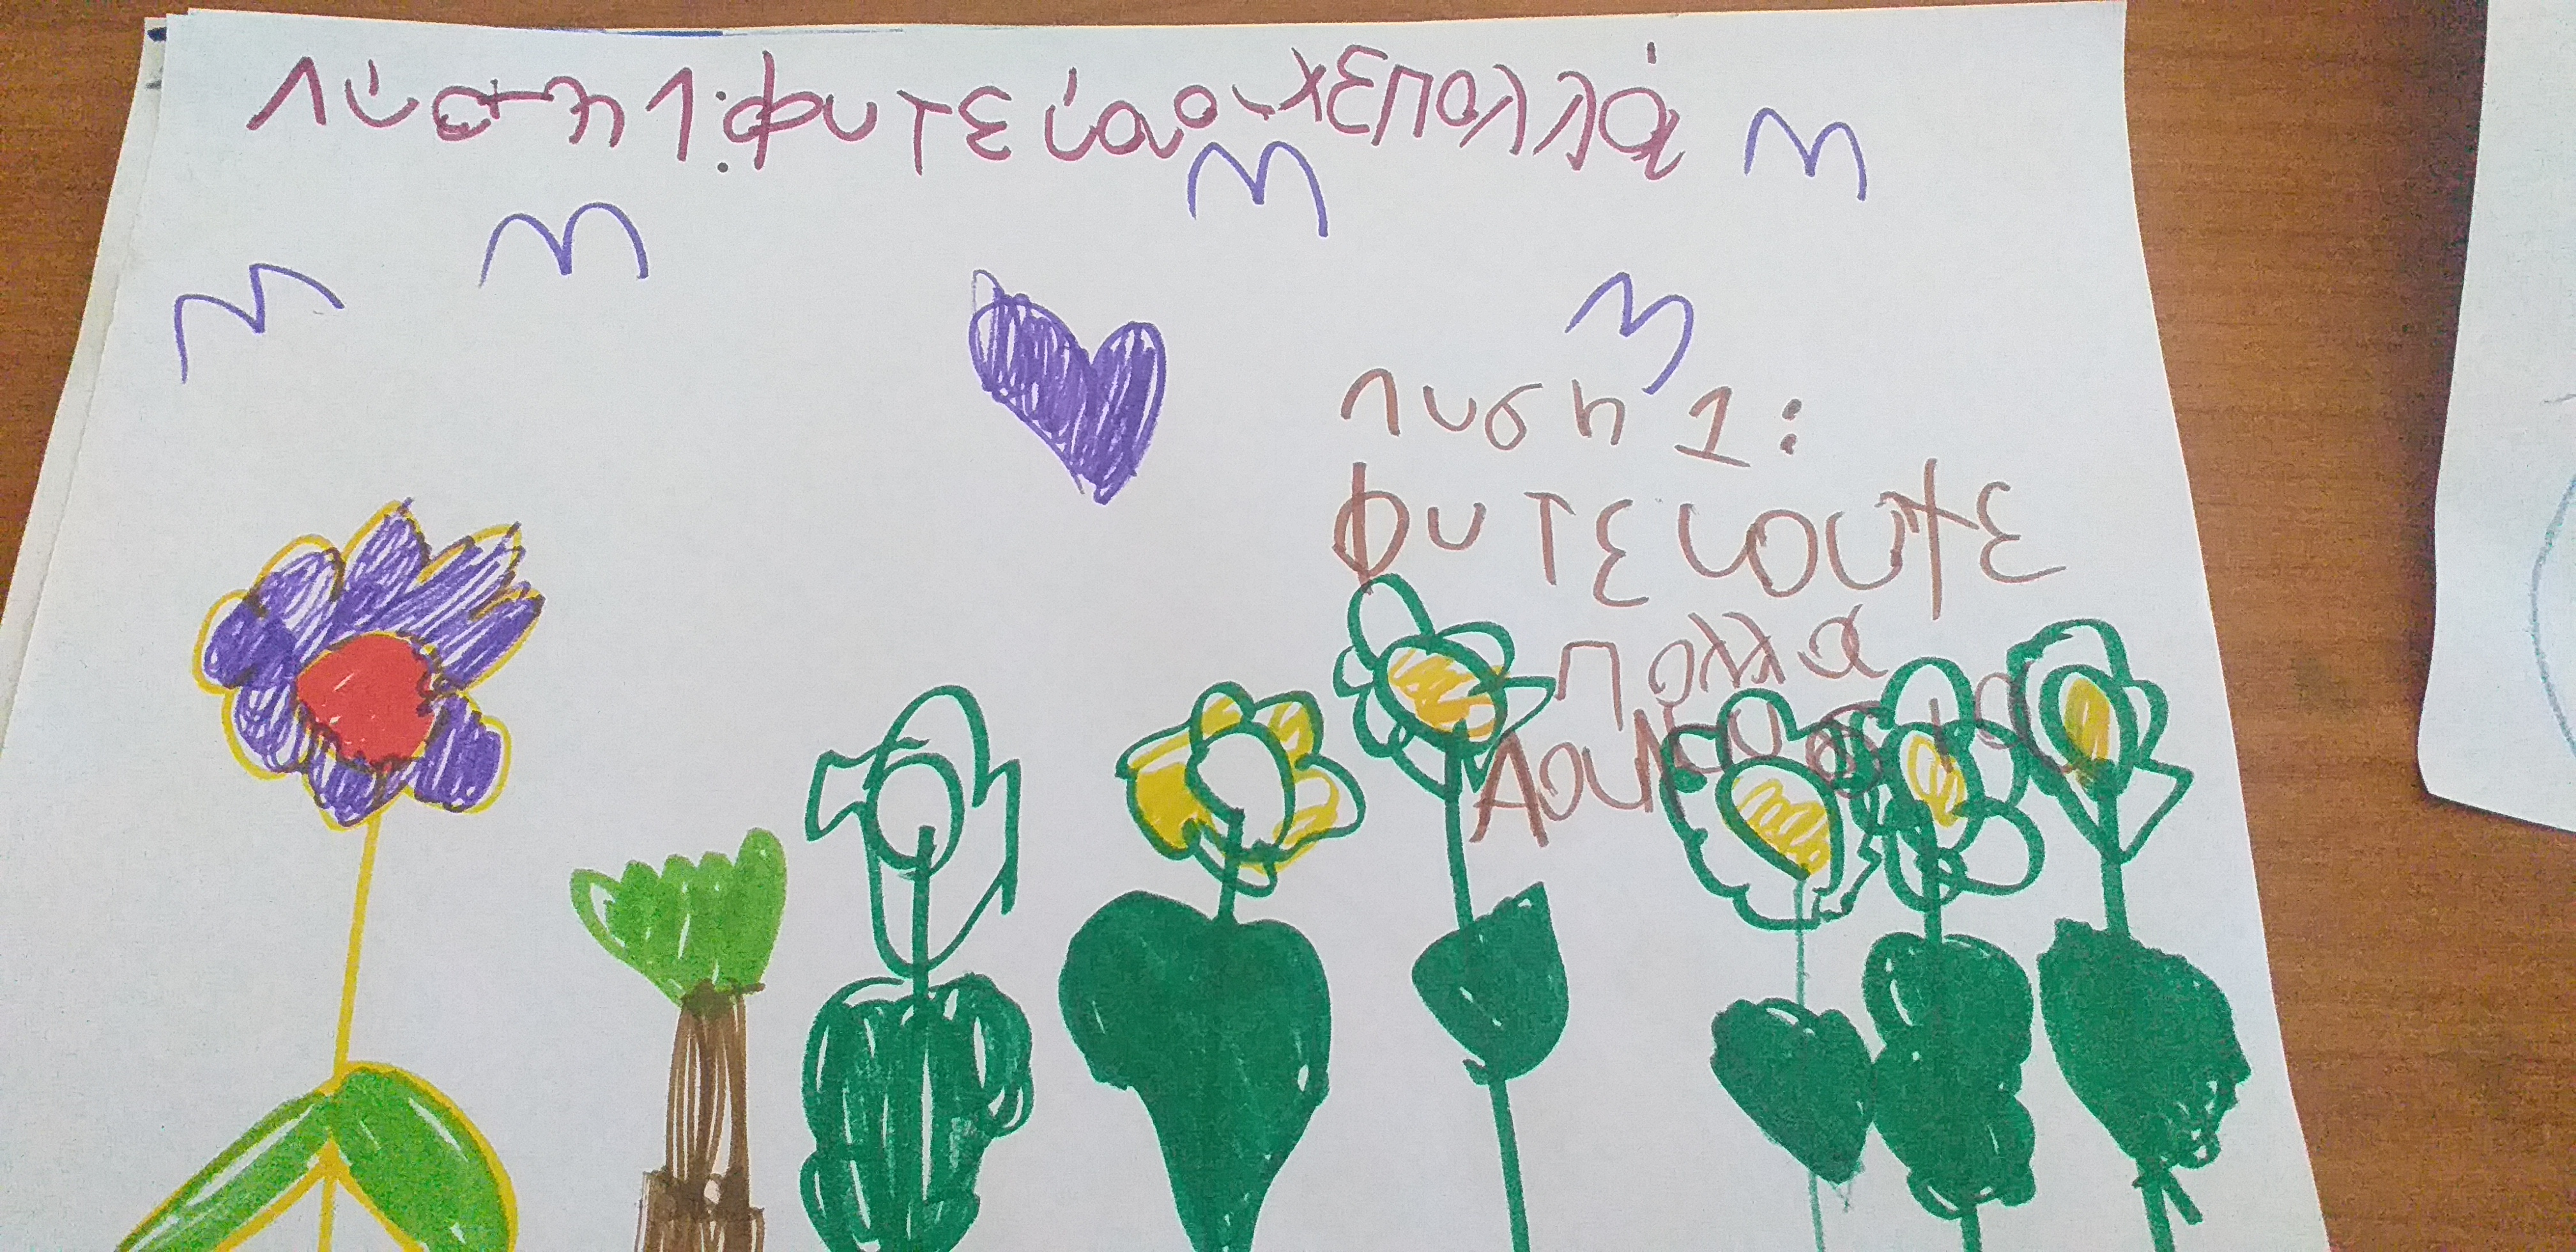 Λύση 1: φυτεύουμε πολλά
Λυση 1:
Φυτευουμε
πολλα
λουλουδια